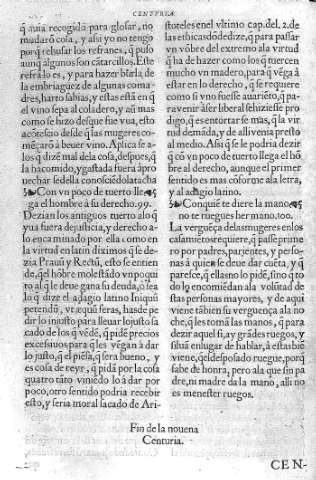 CENTVRIA
q̃ auia recogido para glosar, no
mudarõ cosa, y assi yo no tengo
porq̃ rehusar los refranes, q̃ puso
aunq̃ algunos son cãtarcillos. Este
refrã lo es, y para hazer burla de
la embriaguez de algunas coma-
dres, harto sabias, y estas està en q̃
el vino sepa al coladero, y aũ mas
como se hizo desque fue vua, esto
acõtescio desde q̃ las mugeres co-
mẽçarõ à beuer vino. Aplica se a-
los q̃ dizẽ mal dela cosa, despues, q̃
la hã comido, y gastada fuera apro
uechar se della conoscido la tacha
Con vn poco de tuerto lle-
ga el hombre à su derecho. 99.
Dezian los antiguos tuerto alo q̃
yua fuera de justicia, y derecho a-
lo encaminado por ella: como en
la virtud en latin diximos q̃ se de-
zia Prauũ y Rectũ, esto se entien
de, q̃ el hõbre molestãdo vn poqui
to al q̃ le deue gana su deuda, ò sea
lo q̃ dize el adagio latino Iniquũ
petendũ, vt æquũ feras, hasde pe-
dir lo injusto para lleuar lo justo sa
cado de los q̃ vẽdẽ, q̃ pidẽ precios
excessiuos para q̃ les vẽgan à dar
lo justo, q̃ el piẽsa, q̃ sera bueno, y
es cosa de reyr, q̃ pidã por la cosa
quatro tãto viniẽdo lo à dar por
poco, otro sentido podria recebir
esto, y seria moral sacado de Ari-
stoteles en el vltimo cap. del. 2. de
las ethicas dõde dize, q̃ para passar
vn võbre del extremo ala virtud
q̃ ha de hazer como los q̃ tuercen
mucho vn madero, para q̃ vẽga à
estar en lo derecho, q̃ se requiere
como si vno fuesse auariẽto, q̃ pa-
ra venir à ser liberal se hiziesse pro
digo, q̃ es entortar se mas, q̃ la vir
tud demãda, y de alli venia presto
al medio. Assi q̃ se le podria dezir
q̃ cõ vn poco de tuerto llega el hõ
bre al derecho, aunque el primer
sentido es mas cõforme ala letra,
y al adagio latino.
Con quiẽ te diere la mano
no te ruegues hermano. 100.
La verguẽça de las mugeres en los
casamiẽtos requiere, q̃ passe prime
ro por padres, parientes, y perso-
nas à quien se deue dar cuẽta, y q̃
paresce, q̃ ellas no lo pidẽ, sino q̃ to
do lo encomiẽdan ala volũtad de
estas personas mayores, y de aqui
viene tãbien su verguença ala no
che, q̃ les tomã las manos, q̃ para
dezir aquel si, ay grãdes ruegos, y
si tuã enlugar de hablar, à estas biẽ
viene, q̃ el desposado ruegue, porq̃
sabe de honra, pero ala que sin pa
dre, ni madre da la mano, alli no
es menester ruegos.
Fin de la nouena
Centuria.
CEN-